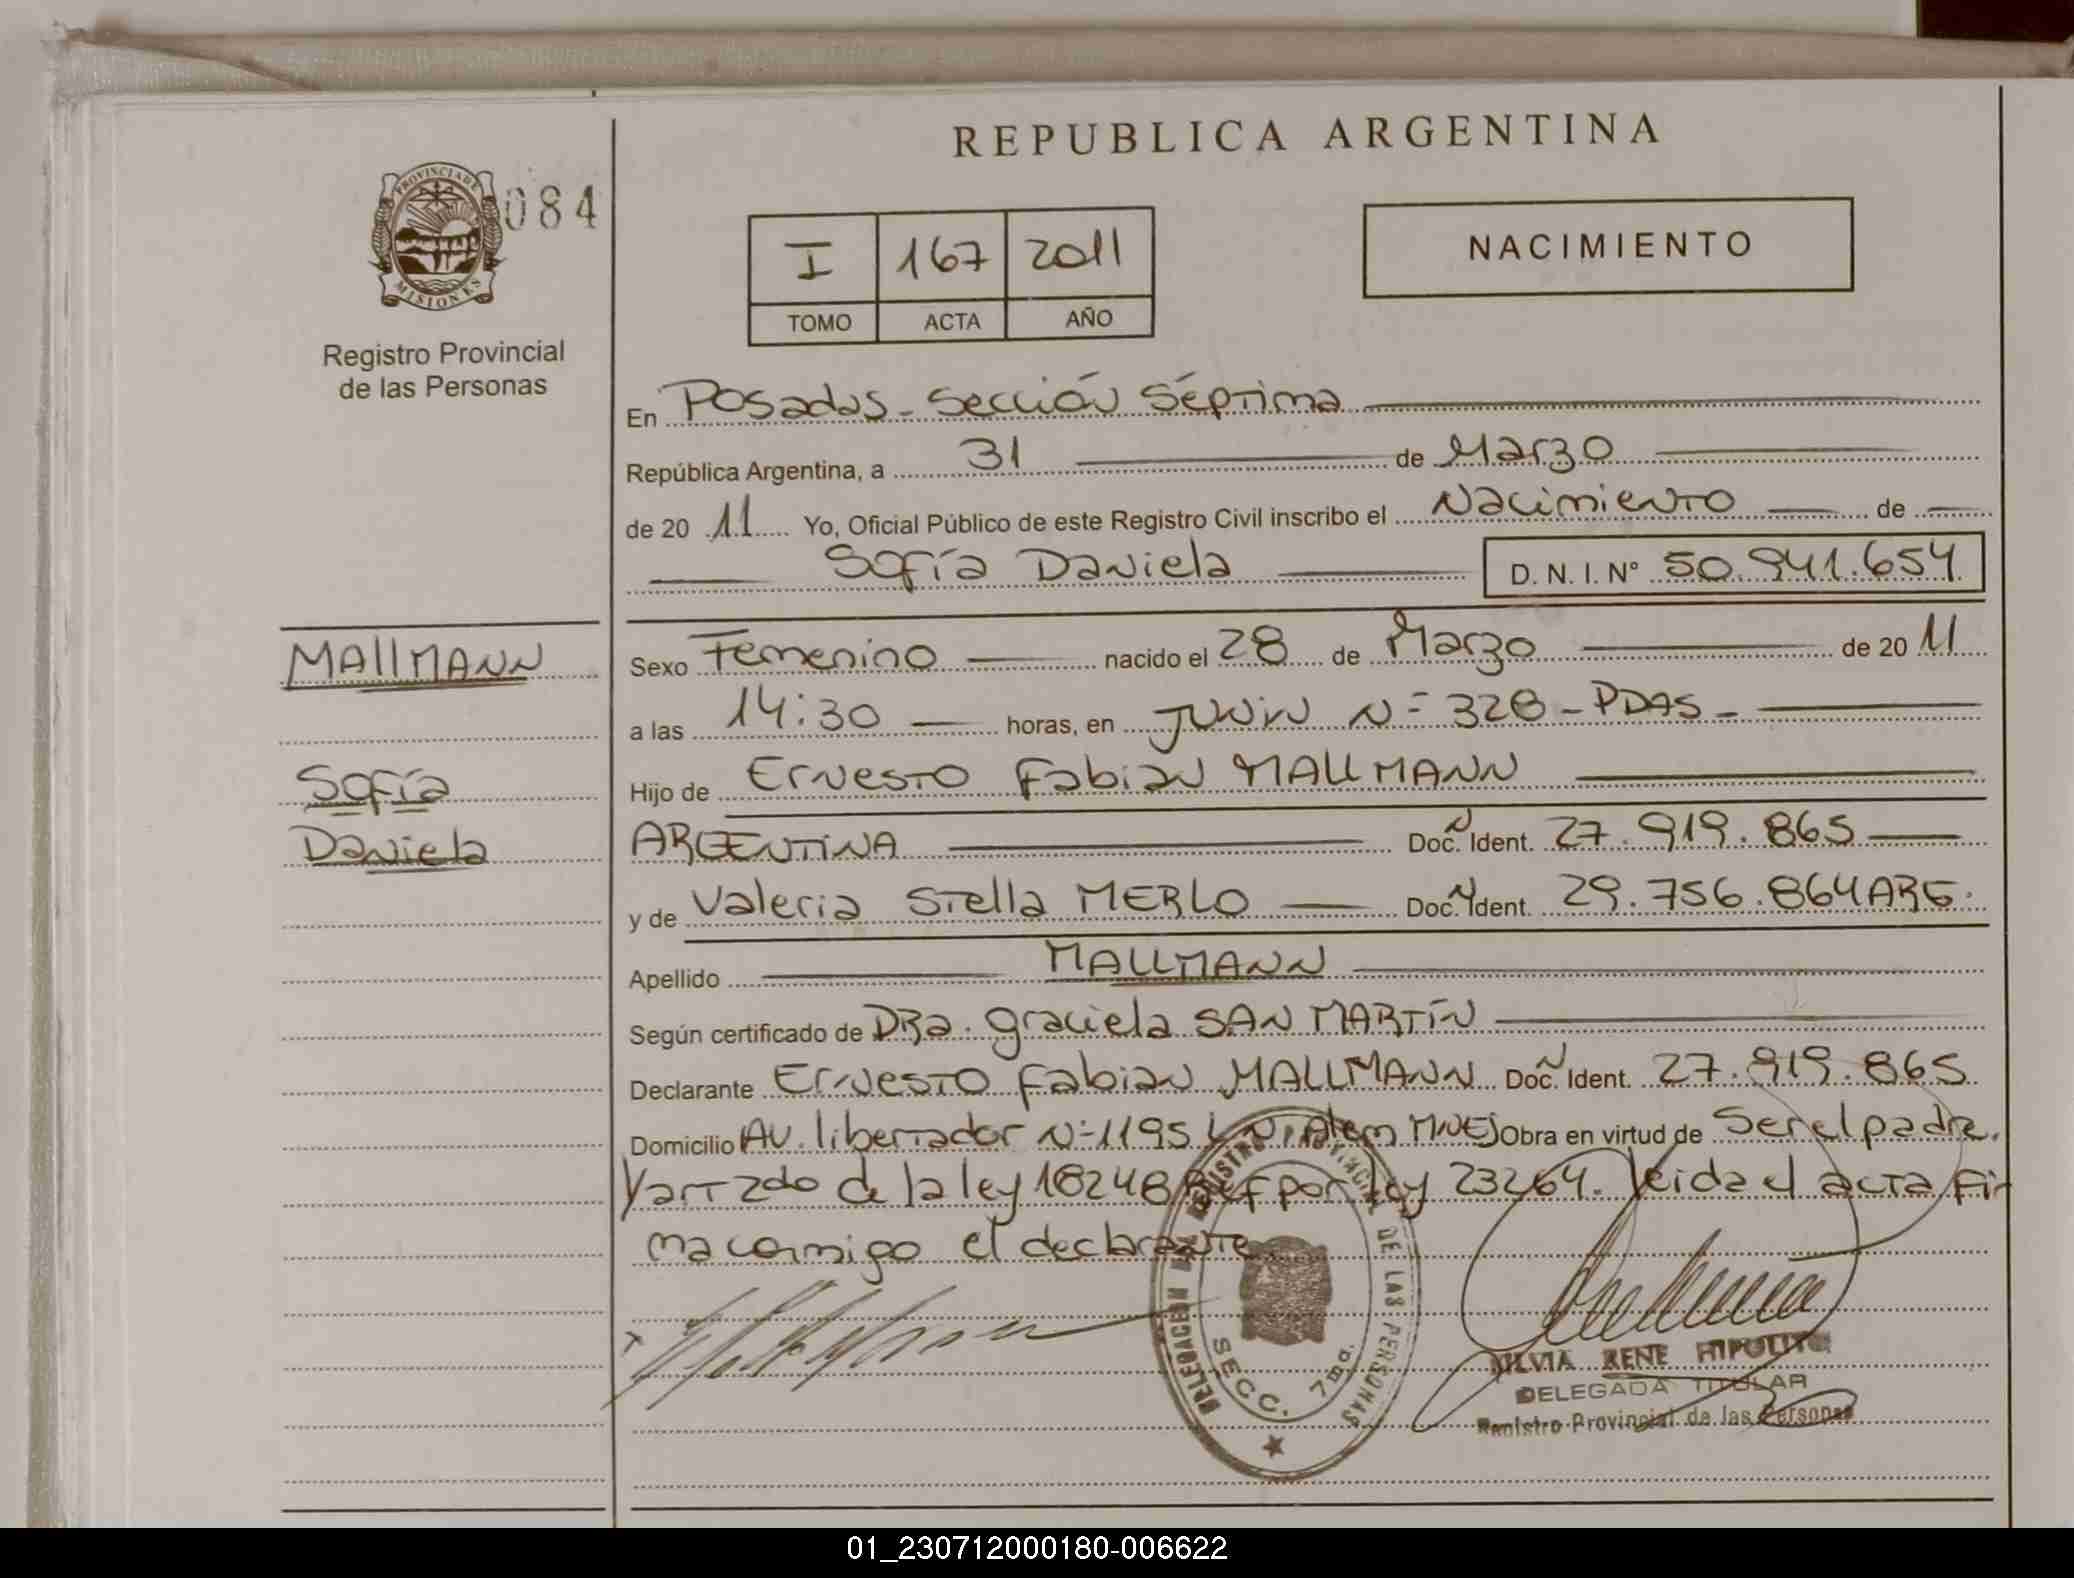 REPUBLICA ARGENTINA
PROVINCIA DE MISIONES
084
I 167 2011
TOMO ACTA AÑO
NACIMIENTO
Registro Provincial
de las Personas
En Posadas - Sección Séptima
República Argentina, a 31 de Marzo
de 20 11 Yo, Oficial Público de este Registro Civil inscribo el Nacimiento de
Sofía Daniela D. N. I. N° 50.941.654
MAllMANN
Sofía
Daniela
Sexo Femenino nacido el 28 de Marzo de 20 11
a las 14:30 horas, en JUNIN N- 328 - PDAS -
Hijo de Ernesto Fabian MALLMANN
ARGENTINA Doc. Ident. 27.919.865
y de Valeria Stella MERLO Doc. Ident. 29.756.864 ARG.
Apellido MALLMANN
Según certificado de DRa. Graciela SAN MARTÍN
Declarante Ernesto Fabian MALLMANN Doc. Ident. 27.919.865
Domicilio AV. libertador N-1195 L.N. Alem MNES Obra en virtud de Ser el padre.
Y art 2do de la ley 18248 Ref por ley 23264. leida el acta fir
ma conmigo el declarante.
DELEGACION REGISTRO PROVINCIAL DE LAS PERSONAS
SECC. 7ma.
SILVIA RENE HIPOLITO
DELEGADA TITULAR
Registro Provincial de las Personas
01_230712000180-006622